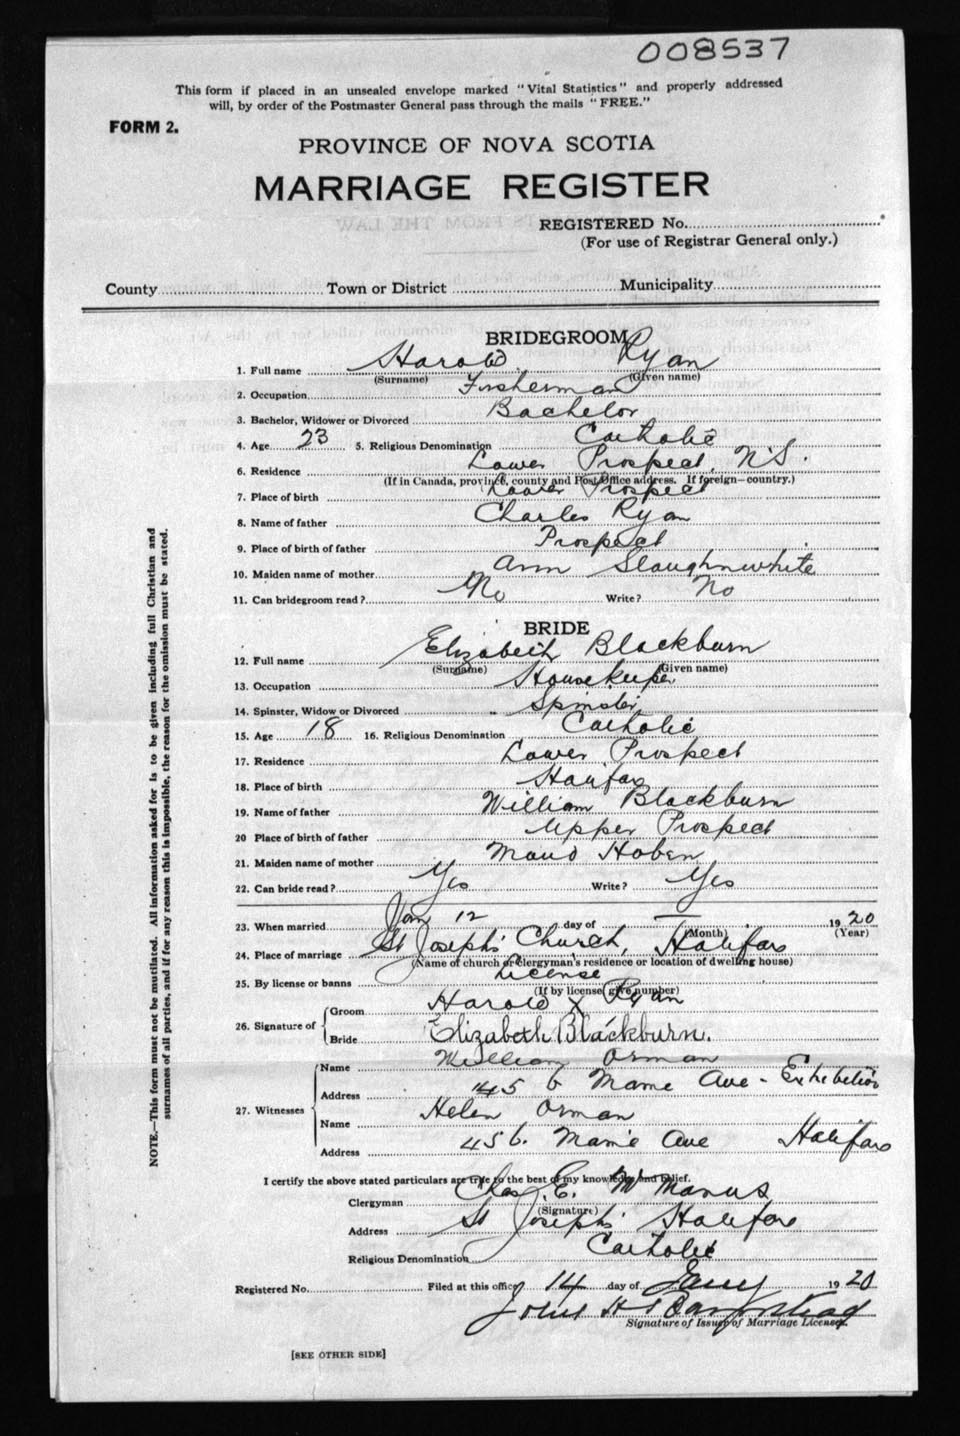 008537
This form if placed in an unsealed envelope marked "Vital Statistics" and properly addressed
will, by order of the Postmaster General pass through the mails "FREE."
FORM 2.
PROVINCE OF NOVA SCOTIA
MARRIAGE REGISTER
REGISTERED No.
(For use of Registrar General only.)
County Town or District Municipality
BRIDEGROOM
1. Full name Harold Ryan
(Surname) (Given name)
2. Occupation Fisherman
3. Bachelor, Widower or Divorced Bachelor
4. Age 23 5. Religious Denomination Catholic
6. Residence Lower Prospect, N.S.
(If in Canada, province, county and Post Office address. If foreign—country.)
7. Place of birth Lower Prospect
8. Name of father Charles Ryan
9. Place of birth of father Prospect
10. Maiden name of mother Ann Slaughnwhite
11. Can bridegroom read? No Write? No
BRIDE
12. Full name Elizabeth Blackburn
(Surname) (Given name)
13. Occupation Housekeeper
14. Spinster, Widow or Divorced Spinster
15. Age 18 16. Religious Denomination Catholic
17. Residence Lower Prospect
18. Place of birth Halifax
19. Name of father William Blackburn
20 Place of birth of father Upper Prospect
21. Maiden name of mother Maud Hoben
22. Can bride read? Yes Write? Yes
23. When married Jan 12 day of — 1920
(Month) (Year)
24. Place of marriage St Joseph's Church, Halifax
(Name of church or clergyman's residence or location of dwelling house)
25. By license or banns License
(If by license, give number)
26. Signature of Groom Harold X Ryan
Bride Elizabeth Blackburn.
27. Witnesses Name William Orman
Address 45 6 Ave - Exhibition
Name Helen Orman
Address 45 6. Ave Halifax
I certify the above stated particulars are true to the best of my knowledge and belief.
Clergyman Chas. E. McManus
(Signature)
Address St Joseph's Halifax
Religious Denomination Catholic
Registered No. Filed at this office 14 day of Jany 1920
John H
Signature of Issuer of Marriage Licenses.
[SEE OTHER SIDE]
NOTE.—This form must not be mutilated. All information asked for is to be given including full Christian and
surnames of all parties, and if for any reason this is impossible, the reason for the omission must be stated.